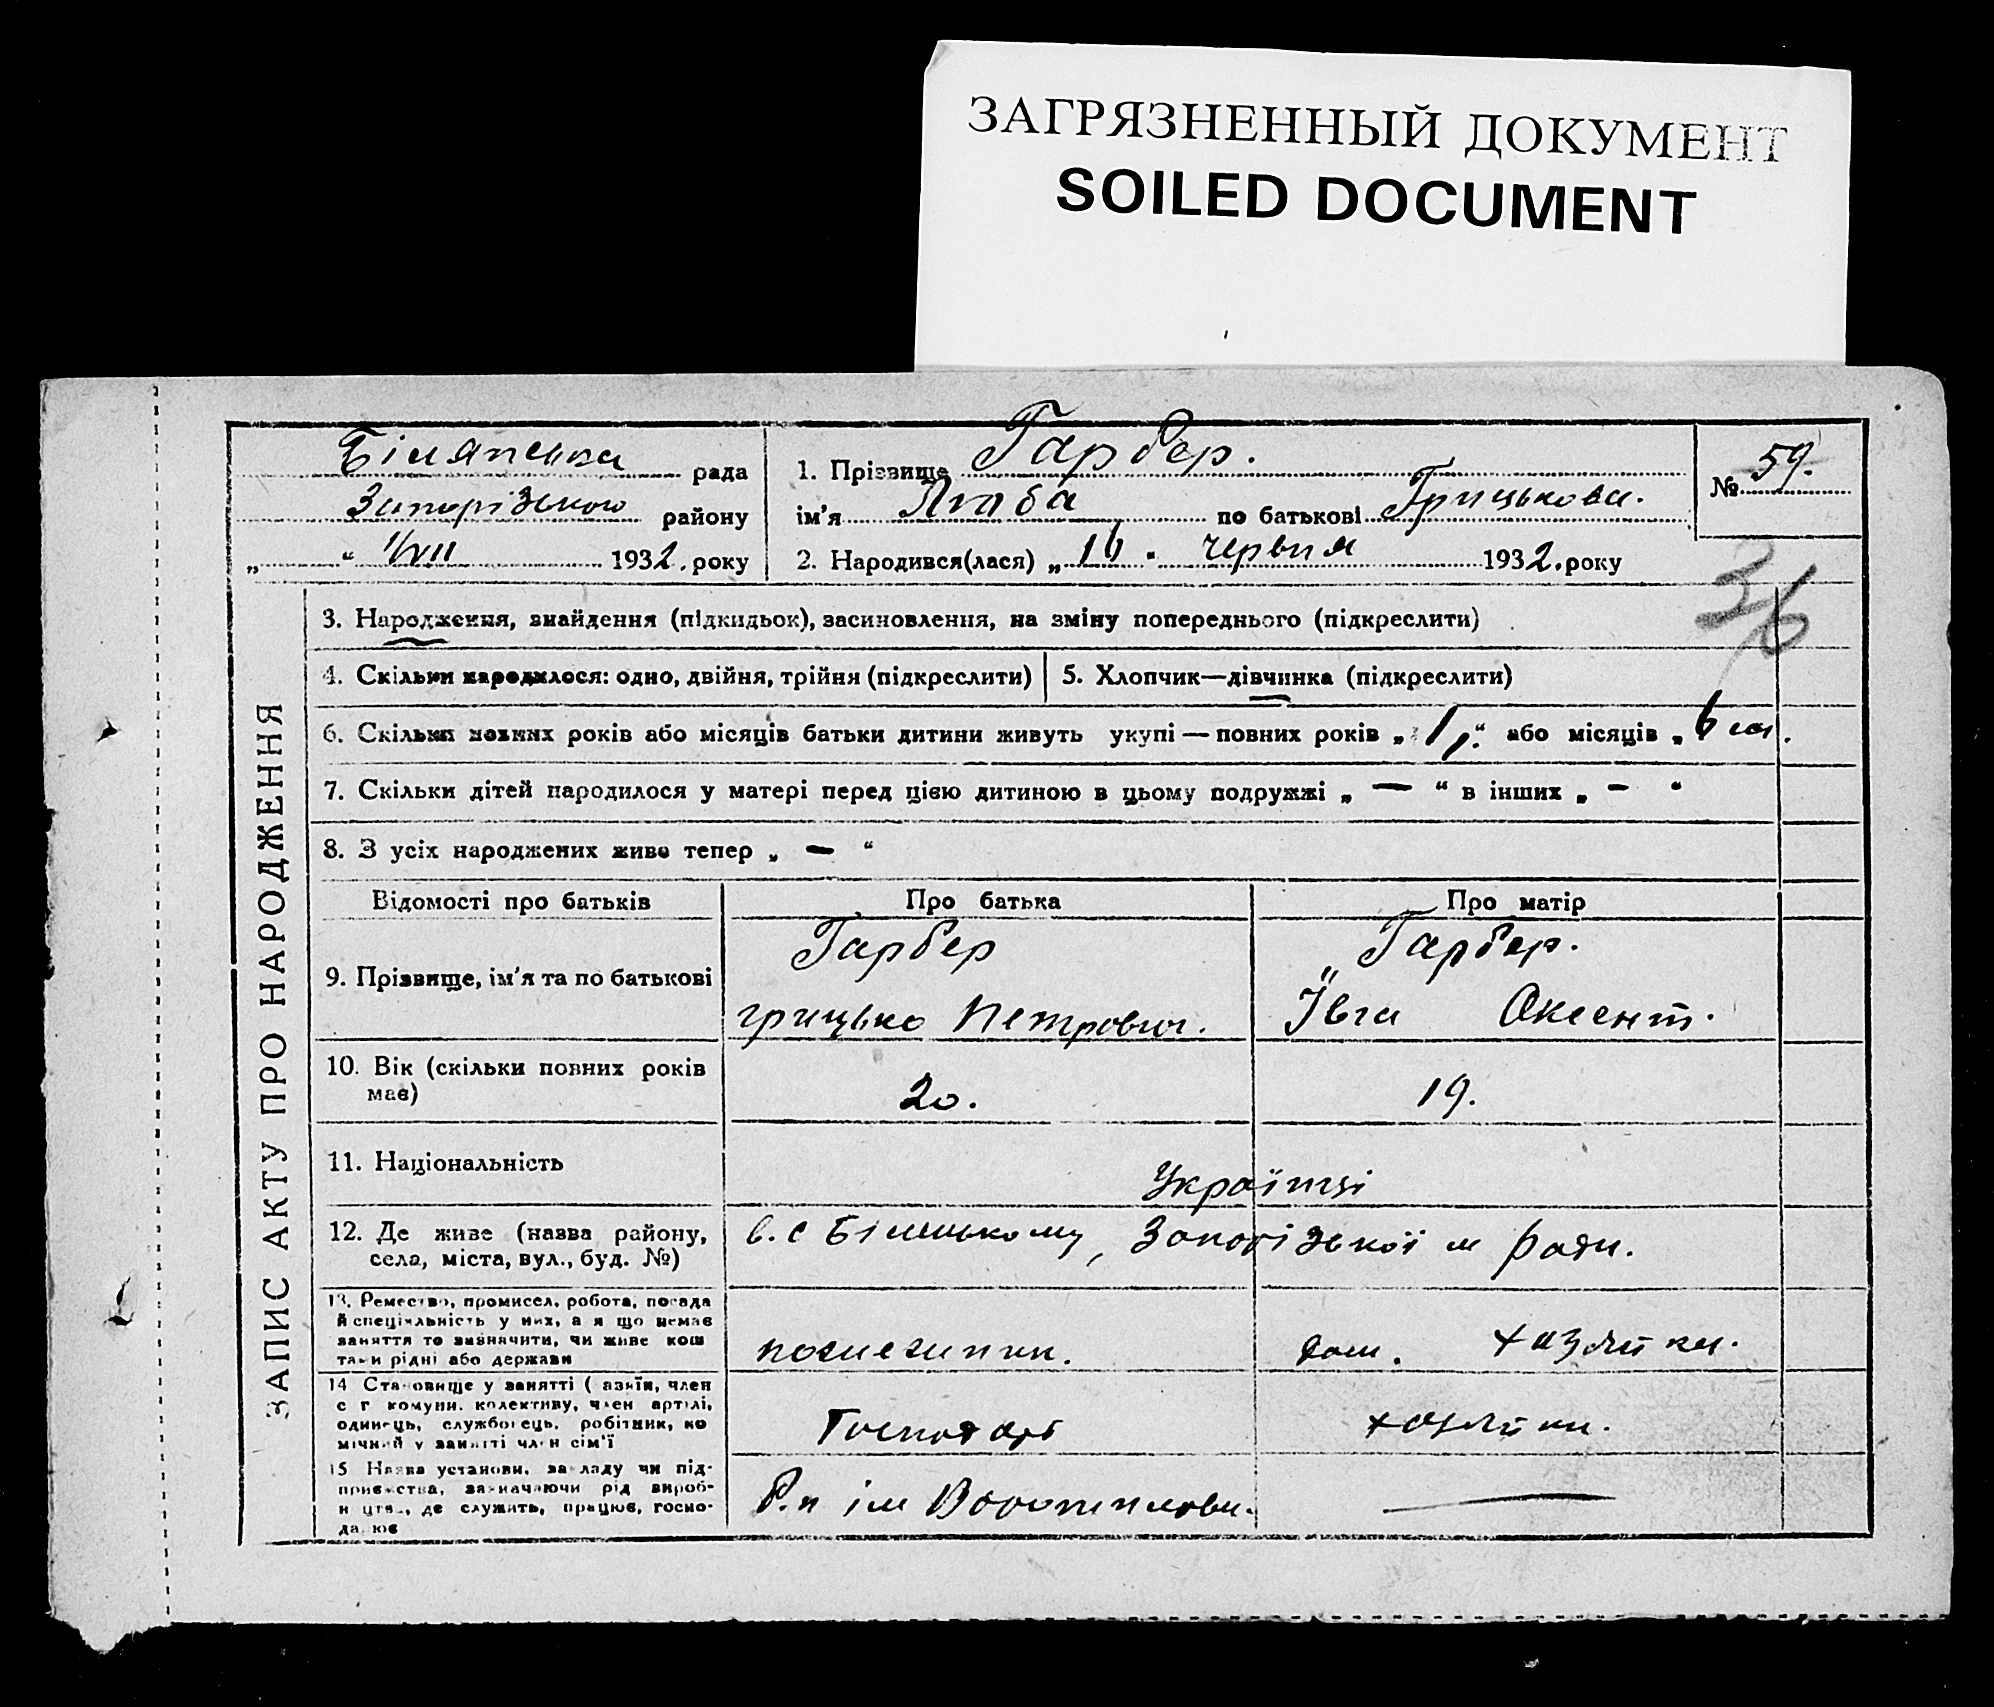 ЗАГРЯЗНЕННЫЙ ДОКУМЕНТ
SOILED DOCUMENT
рада
Запорізького району
„ “ 1/VII 1932. року
1. Прізвище Гарбер.
ім'я Люба по батькові Грицькова.
2. Народився(лася) „ 16 “ червня 1932. року
№ 59.
36
ЗАПИС АКТУ ПРО НАРОДЖЕННЯ
3. Народження, знайдення (підкидьок), засиновлення, на зміну попереднього (підкреслити)
4. Скільки народилося: одно, двійня, трійня (підкреслити)
5. Хлопчик—дівчинка (підкреслити)
6. Скільки повних років або місяців батьки дитини живуть укупі — повних років „ 1 р. “ або місяців „ 6 м.
7. Скільки дітей народилося у матері перед цією дитиною в цьому подружжі „ — “ в інших „ — “
8. З усіх народжених живе тепер „ — “
Відомості про батьків
Про батька
Про матір
9. Прізвище, ім'я та по батькові
Гарбер
грицько Петрович.
Гарбер.
Ївга Оксент.
10. Вік (скільки повних років
має)
20.
19.
11. Національність
Українці
12. Де живе (назва району,
села, міста, вул., буд. №)
в. с Запорізької м Ради.
13. Ремество, промисел, робота, посада
й спеціяльність у них, а я що немає
заняття то визначити, чи живе кош
тами рідні або держави
дом. хазяйка.
14 Становище у занятті ( азяїн, член
с г комуни, колективу, член артілі,
одинець, службовець, робітник, по
мічний у занятті член сім'ї
Господарь
хазяйка.
15 Назва установи, закладу чи під-
приємства, зазначаючи рід вироб-
ництва, де служить, працює, госпо-
дарює
ім Ворошилова.